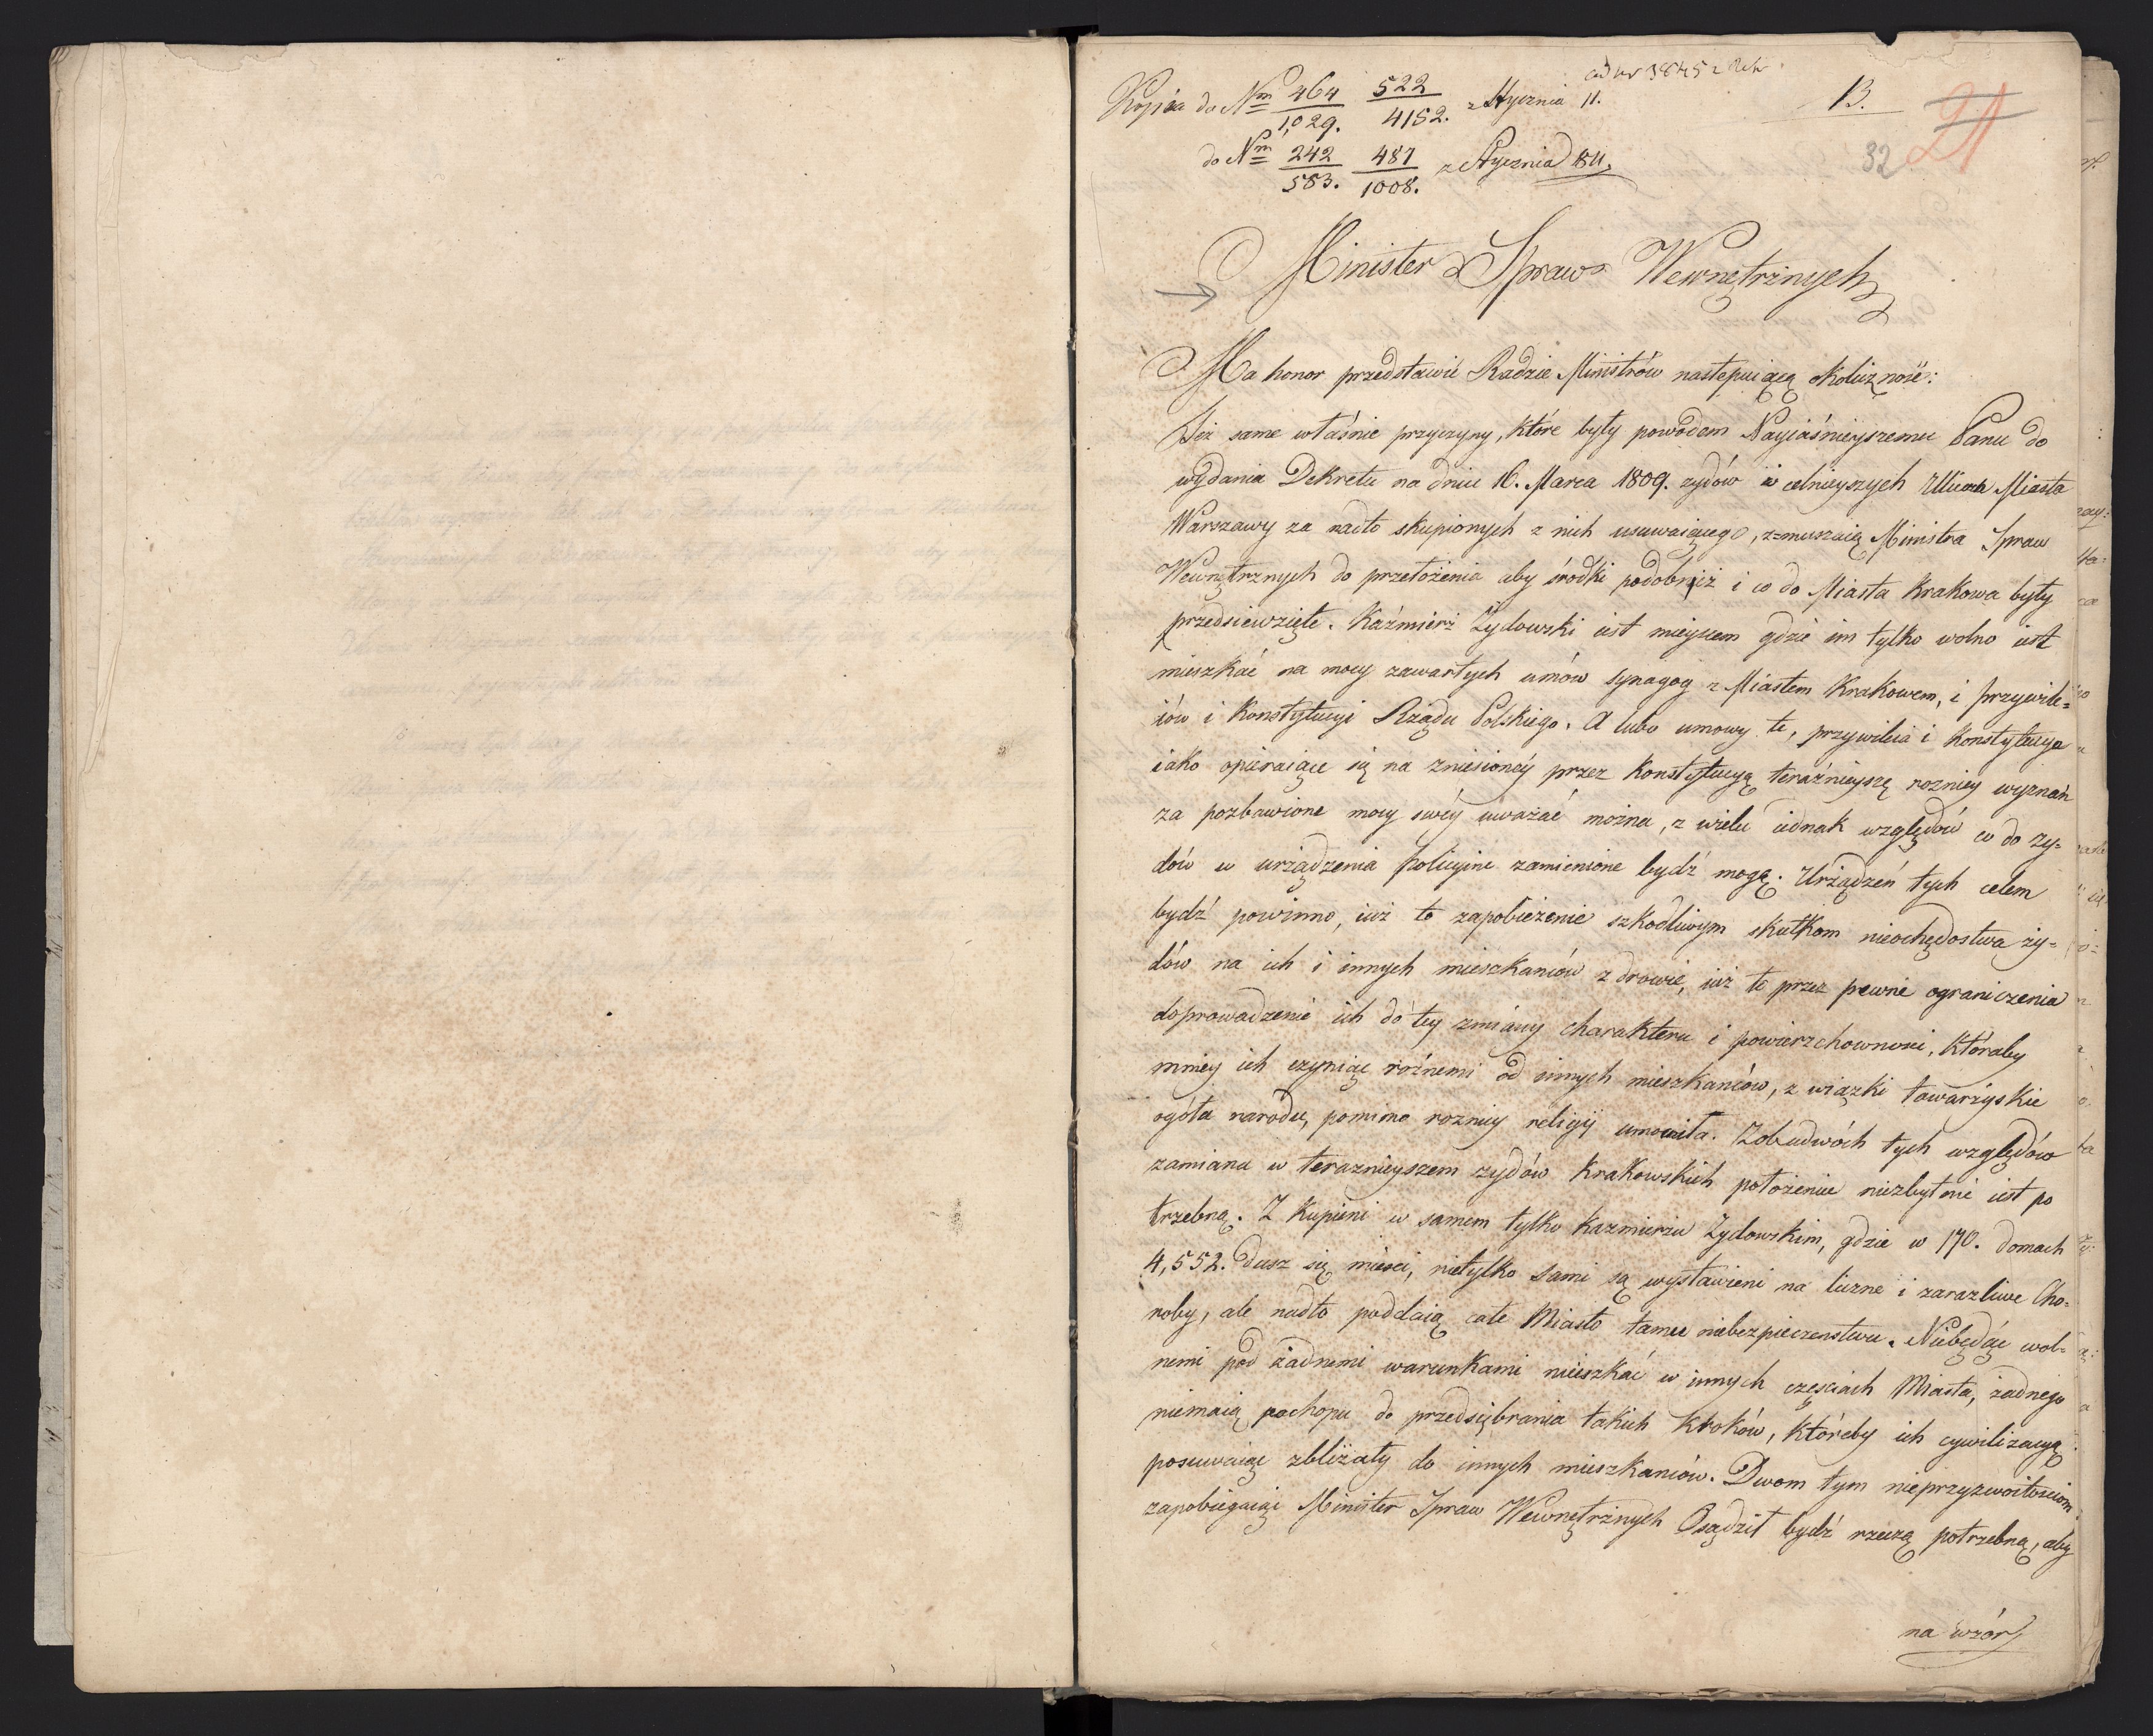 Kopia do Nrn 464/1,029. 522/4152. z Stycznia 11.
13.
21
32
do Nrn 242/583. 487/1008. z Stycznia 1811.
Minister Spraw Wewnętrznych
Ma honor przedstawić Radzie Ministrów następuiącą okoliczność:
Też same właśnie przyczyny, które były powodem Nayiaśnieyszemu Panu do
wydania Dekretu na dniu 16. Marca 1809. żydów w celnieyszych Ulicach Miasta
Warszawy za nadto skupionych z nich usuwaiącego, zmuszaią Ministra Spraw
Wewnętrznych do przełożenia aby środki podobnież i co do Miasta Krakowa były
przedsięwzięte. Kaźmierz Żydowski iest mieyscem gdzie im tylko wolno iest
mieszkać na mocy zawartych umów synagog z Miastem Krakowem, i przywile=
iów i Konstytucyi Rządu Polskiego. A lubo umowy te, przywileia i Konstytucye
iako opieraiące się na zniesionéy przez Konstytucyą teraźnieyszę rożnicy wyznań
za pozbawione mocy swéy uważać można, z wielu iednak względów co do ży=
dów w urządzenia policyine zamienione bydź mogą. Urządzeń tych celem
bydź powinno, iuż to zapobieżenie szkodliwym skutkom nieochędostwa ży=
dów na ich i innych mieszkańców zdrowie, iuż to przez pewne ograniczenia
doprowadzenie ich do tey zmiany charakteru i powierzchowności, któraby
mniey ich czyniąc rożnemi od innych mieszkańców, związki towarzyskie
ogółu narodu, pomimo rożnicy religij umocniła. Z obudwóch tych względów
zamiana w teraznieyszem żydów Krakowskich położeniu niezbytnie iest po
trzebną. Skupieni w samem tylko Kazmierzu Żydowskim, gdzie w 170. domach
4,552. dusz się mieści, nietylko sami są wystawieni na liczne i zarazliwe Cho=
roby, ale nadto poddaią całe Miasto temu niebezpieczenstwu. Niebędąc wol=
nemi pod żadnemi warunkami mieszkać w innych częściach Miasta, żadnego
niemaią pochopu do przedsiębrania takich kroków, któreby ich cywilizacyą
posuwaiąc zbliżały do innych mieszkańców. Dwom tym nieprzyzwoitościom
zapobiegaiąc Minister Spraw Wewnętrznych Osądził bydź rzeczą potrzebną, aby
na wzór